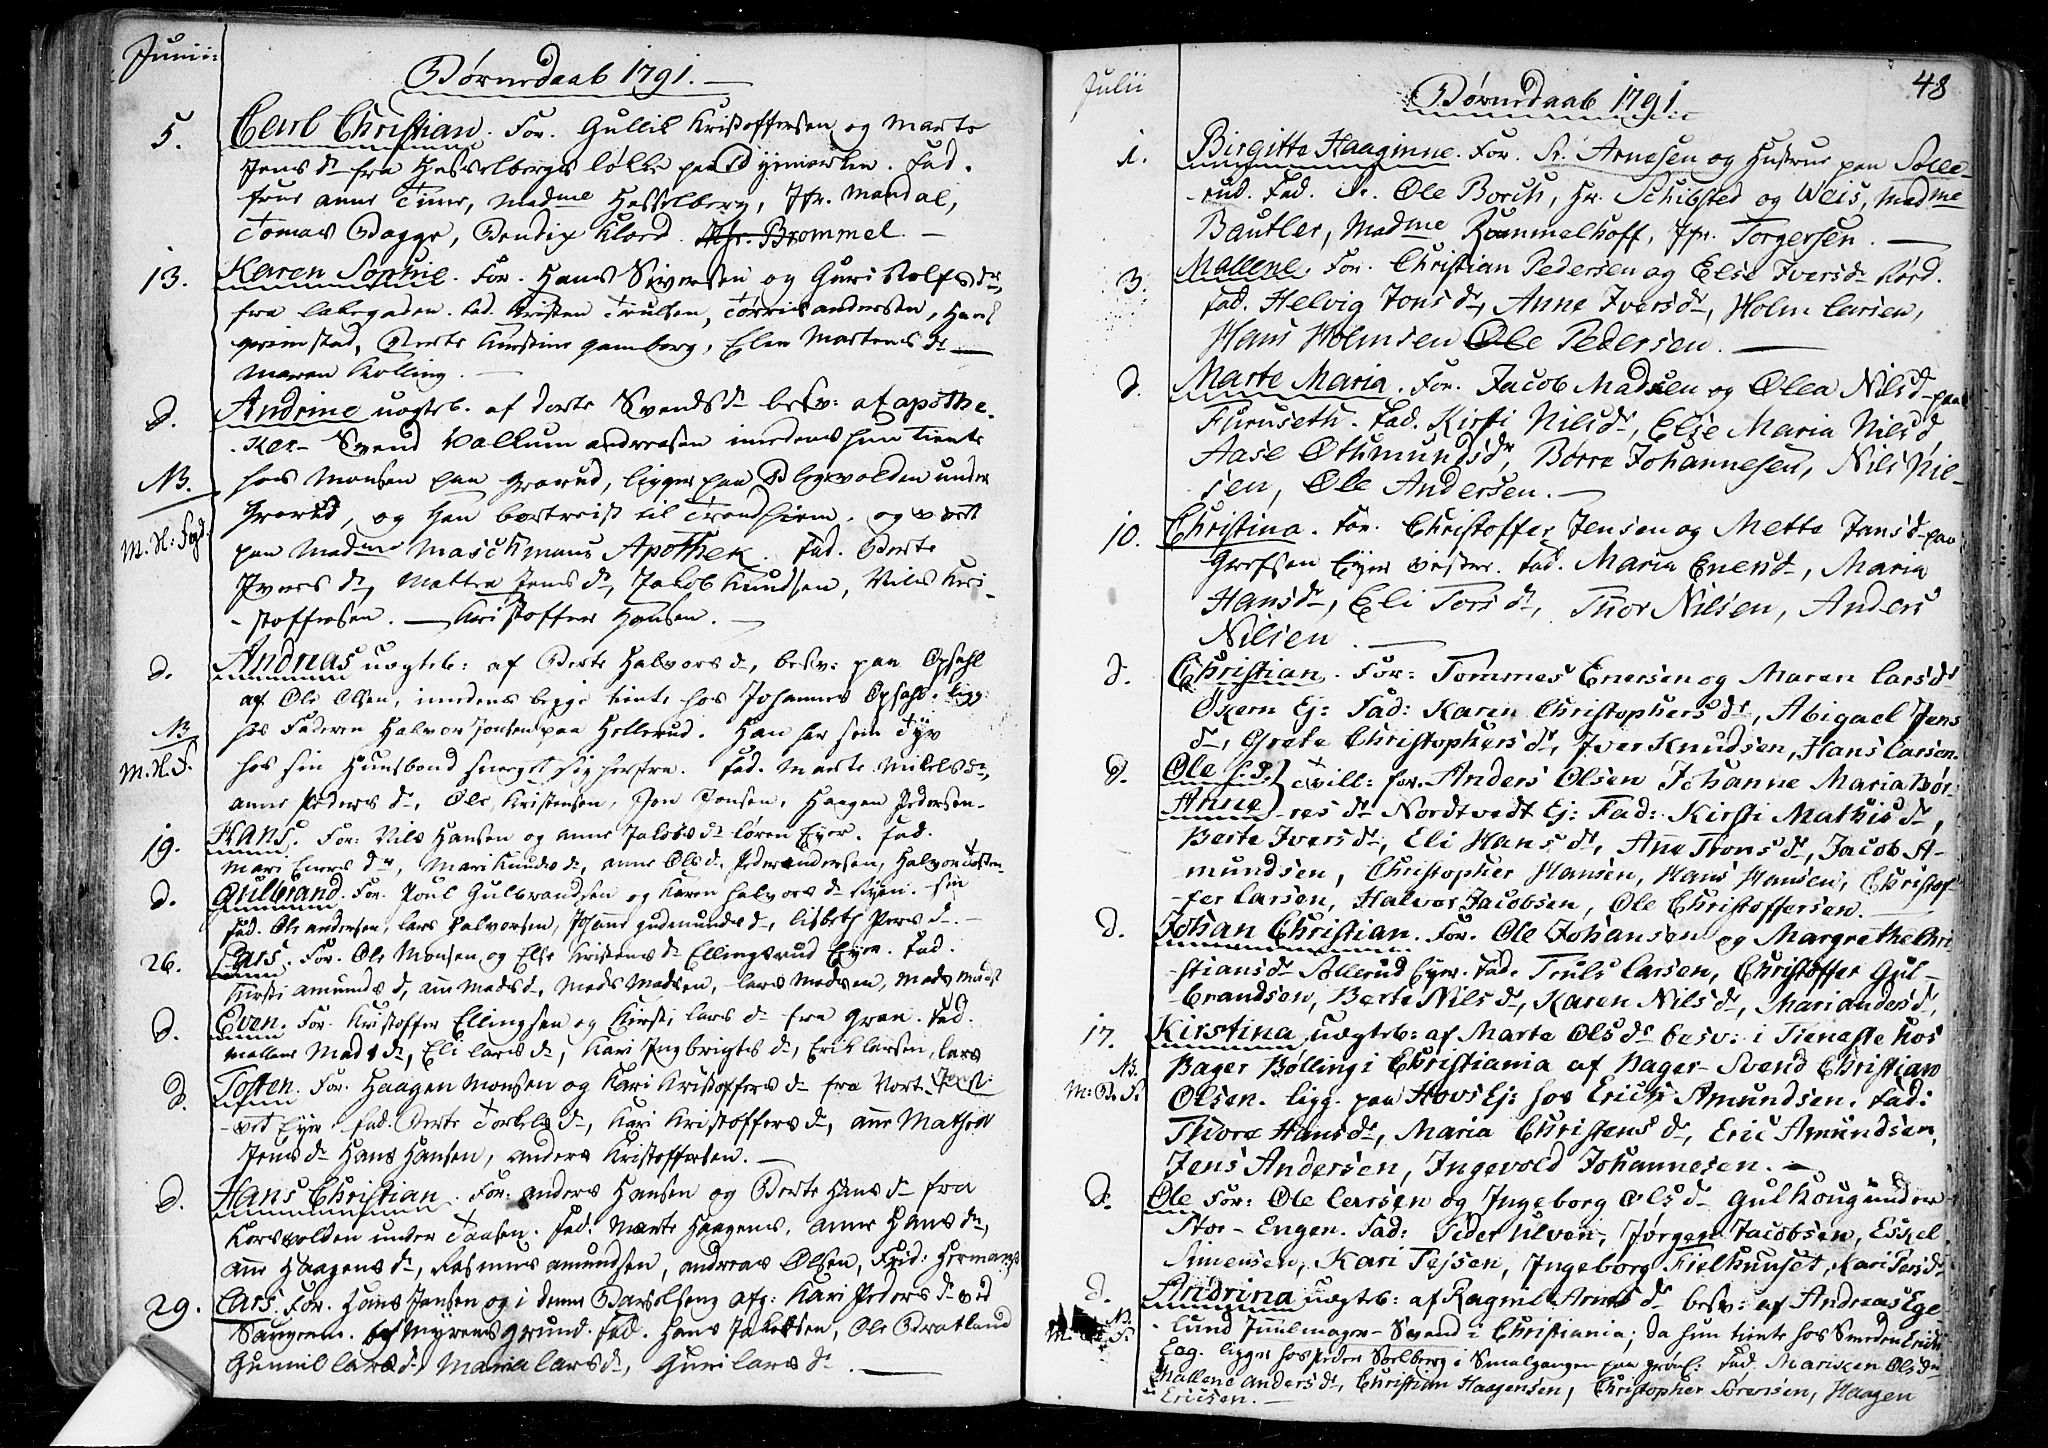 Junii:
Børnedaab 1791.
5. Carl Christian. For. Gullik Kristoffersen og Marte
Jens dr fra Hesselbergs løkke paa Dynnerløn. Fad.
Frue Anne Tine, Madme Hesselberg, Jfr. Mandal,
Tomas Bagge, Bendix Klord. Mr. Brommel.
13. Karen Sophie. For. Hans Siversen og Guri Rolfsdr
fra Lakegaden. Fad. Kristen Trulsen, Torris Andersen, Hans
Grimstad, Berte Kirstine Gamborg, Elen Martens dr
Maren Kolling.
d. Andrine uegteb. af Dorte Svends dr besv: af Apothe-
ker- Svend Vallum Andreasen imedens hun tiente
NB. hos Monsen paa Grorud, ligger paa Bligsvolden under
Grorud, og Han bortreist til Trondhiem. og vært
M. N: Fogd. paa Madme Maschmans Apothek. Fad. Berte
Ivers dr, Mattea Jens dr, Jakob Knudsen, Nils Kri-
stoffersen. Kristoffer Hansen.
d. Andreas uegteb: af Berte Halvors dr, besv: paa Opsahl
af Ole Olsen, imedens begge tiente hos Johannes Opsahl. ligg:
NB hos Faderen Halvor Jonsen paa Hellerud. Han har som Tyv
M. N. F. hos sin Huusbond sneget sig herfra. Fad. Marte Mikels dr,
Anne Peders dr, Ole Kristensen, Jon Jonsen, Haagen Pedersen.
19. Hans. For: Nils Hansen og Anne Jakobs dr Løren Eyer. Fad.
Mari Eners dr, Mari Knuds dr, Anne Ols dr, Peder Andersen, Halvor Tosten-
sen
d. Gulbrand. For. Poul Gulbrandsen og Karen Halvors dr Ryen.
Fad. Ole Andersen, Lars Halvorsen, Johanne Gudmunds dr, Lisbeth Pers dr.
26. Lars. For. Ole Monsen og Else Kristens dr Ellingsrud Eyer. Fad.
Kirsti Amunds d, Anne Mads d, Mads Madsen, Lars Madsen, Mads Mads:
d. Even. For. Kristoffer Ellingsen og Kirsti Lars dr fra Gran. Fad.
Mallene Mads dr, Eli Lars dr, Kari Ingbrigts dr, Erik Larsen, Lars
Jens:
d. Tosten. For. Haagen Monsen og Kari Kristoffers dr fra Nort-
vet Eyer Fad. Berte Torkels dr, Kari Kristoffers dr, Anne Mathea
Jens dr Hans Hansen, Anders Kristoffersen.
d. Hans Christian. For: Anders Hansen og Berte Hans dr fra
Korsvolden under Taasen. Fad. Marte Haagens, Anne Hans dr,
Anne Haagens dr, Rasmus Amundsen, Andreas Olsen, Frid: Hermans
29. Lars. For. Hans Jensen og i denne Barselseng afg: Kari Peders dr ved
Saugene. Myrens Grund. Fad. Hans Jakobsen, Ole Bratland
Gunnil Lars dr, Maria Lars dr, Guri Lars dr.
Julii
Børnedaab 1791.
48
1. Birgitte Haaginne. For. Sr. Arnesen og Hustrue paa Solle-
rud. Fad. Sr. Ole Borch, Hr. Schibsted og Weis, Madme
Bautler, Madme Rommelhoff, Jfr. Torgersen.
3. Mallene. For. Christian Pedersen og Else Ivers dr
Fad. Helvig Jons dr, Anne Ivers dr, Holm Larsen,
Hans Holmsen Ole Pedersen.
d. Marte Maria. For. Jacob Madsen og Olea Nils d paa
Furuseth. Fad. Kirsti Nils dr, Else Maria Nils d
Aase Othmunds dr, Børre Johannesen, Nils Nil-
sen, Ole Andersen.
10. Christina. For. Christoffer Jensen og Mette Jans d paa
Grefsen Eyer vestre. Fad. Maria Eners dr, Maria
Hans dr, Eli Tors dr, Thor Nilsen, Anders
Nilsen.
d. Christian. For: Tommes Enersen og Maren Lars dr
Økern Ej: Fad: Karen Christophers dr, Abigael Jens
dr, Grete Christophers dr, Iver Knudsen, Hans Larsen.
d. Ole
Anne tvill: For. Anders Olsen Johanne Maria Bør-
res dr Nordtvedt Ej: Fad: Kirsti Mathis dr,
Berte Ivers dr, Eli Hans dr, Anne Trons dr, Jacob A-
mundsen, Christopher Hansen, Hans Hansen, Christof-
fer Larsen, Halvor Jacobsen, Ole Christoffersen.
d. Johan Christian. For. Ole Johansen og Margrethe Chri-
stians dr Sollerud Eyer. Fad. Truls Larsen, Christoffer Gul-
brandsen, Berte Nils dr, Karen Nils dr, Mari Anders dr,
17. Kirstina uegteb: af Marte Ols dr besv: i Tieneste hos
NB. Bager Bølling i Christiania af Bager-Svend Christian
M: B. F: Olsen. ligg. paa Hovs Ej: hos Erich Amundsen. Fad:
Thore Hans dr, Maria Christens dr, Eric Amundsen,
Jens Andersen, Ingevold Johannesen.
d. Ole For: Ole Larsen og Ingeborg Ols dr Gulhoug under
Stor-Engen. Fad: Peder Ulven, Jørgen Jacobsen, Eskel
Simensen, Kari Tejsen, Ingeborg Fielhuuset, Kari Pers dr
d. Andrina uegteb: af Ragnil Arnes dr besv: af Andreas Ege-
NB. lund Juulmager-Svend i Christiania; da hun tiente hos Smeden Erich
Eag. ligger hos Peder Soelberg i Smalgangen paa Grønl: Fad. Marisken Ols dr
Mallene Anders dr, Christian Haagensen, Christopher Sørensen, Haagen
Ericsen.